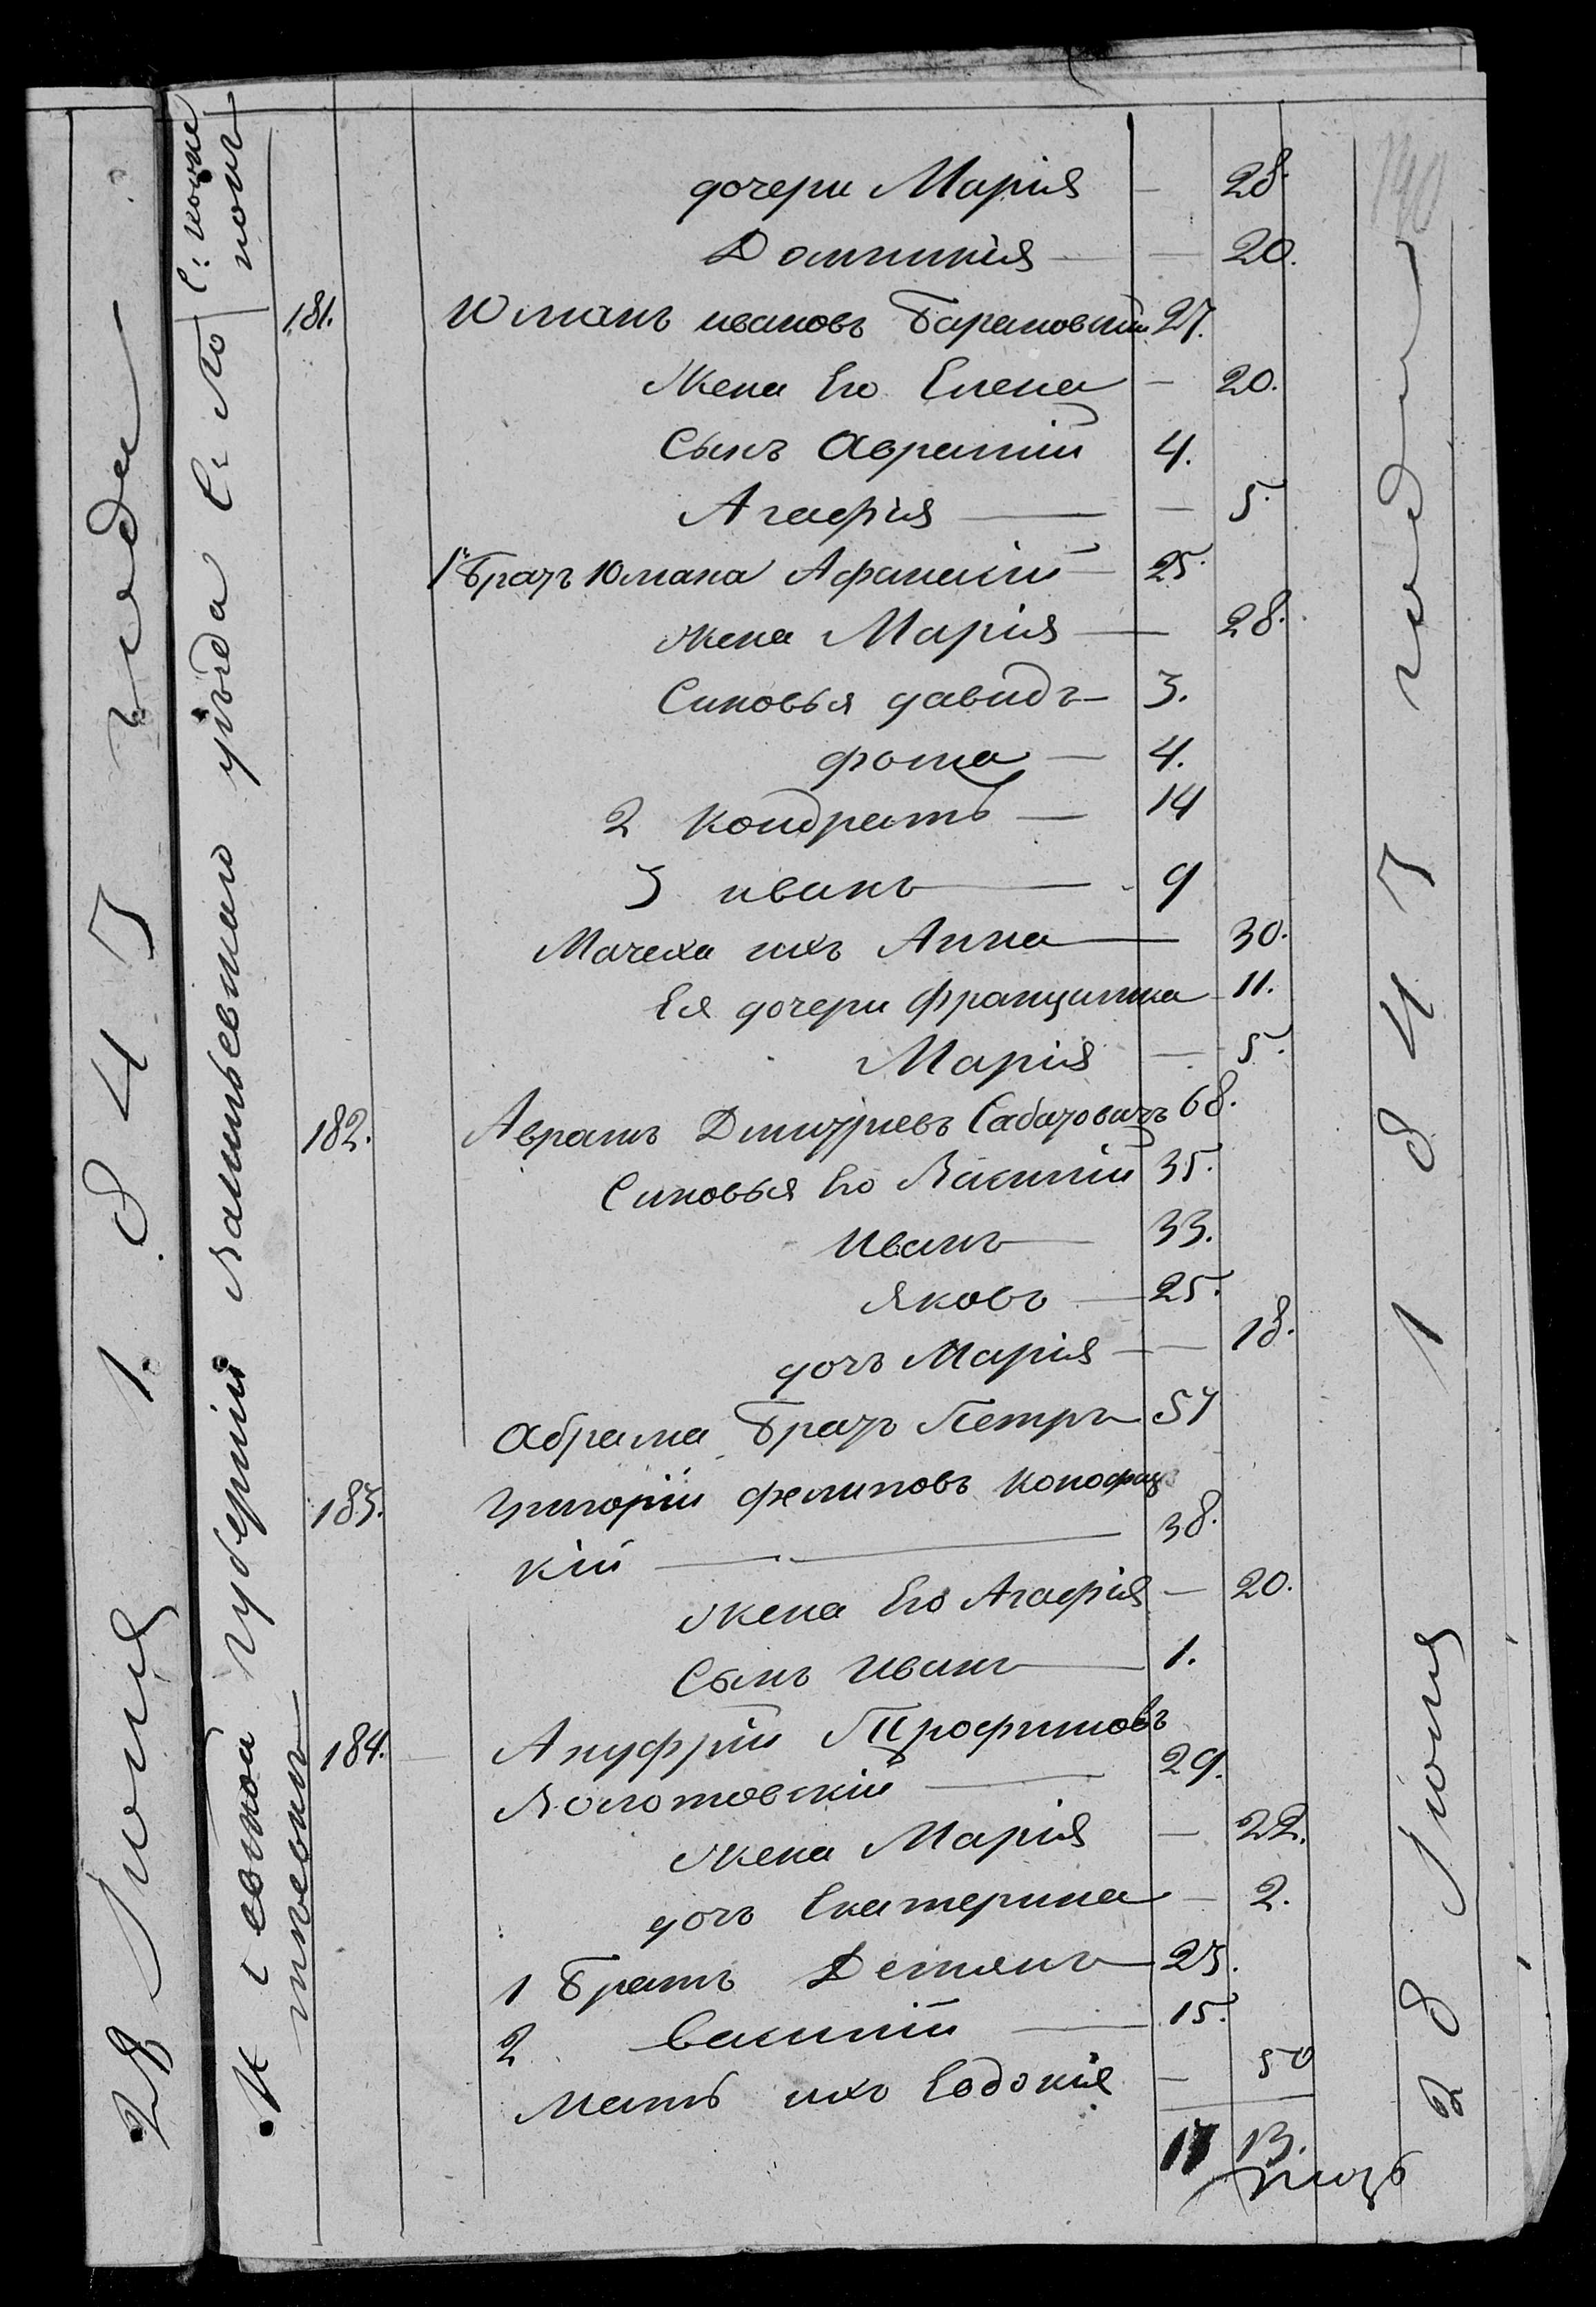 дочери Марія — 28.
Доминикія — 20.
181. Юманъ ивановъ Барановскій 27.
Жена Его Елена — 20.
Сынъ Аврамій 4.
Агафія — 5.
1й Братъ Юмана Афанасій — 25.
жена Марія — 28.
Сыновья давидъ — 3.
фома — 4.
2 Кондратъ — 14
3 иванъ — 9
Мачеха ихъ Анна — 30.
Ея дочери Францишка 11.
Марія — 5.
182. Аврамъ Дмитріевъ 68.
Сыновья Его Василій 35.
Иванъ — 33.
Яковъ — 25.
дочь Марія — 18.
Абрама Братъ Петръ 57
183. Григорій филиповъ
кій — 38.
жена Его Агафія — 20.
Сынъ Иванъ — 1.
184. Ануфрій Трофимовъ
29.
жена Марія — 22.
дочь Екатерина — 2.
1 Братъ Демянъ — 23.
2 Василій — 15.
Мать ихъ Евдокія — 50
17 13.
28 Іюня 1843 года
губерніи уѣзда
28 Іюня 1843 года